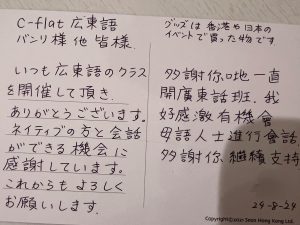 C-flat 広東語
バンリ様 他 皆様
いつも広東語のクラス
を開催して頂き
ありがとうございます。
ネイティブの方と会話
ができる機会に
感謝しています。
これからもよろしく
お願いします。
グッズは香港や日本の
イベントで買った物です
多謝你哋一直
開廣東話班。我
好感激有機會
母語人士進行會話
多謝你、繼續支持
24-8-24